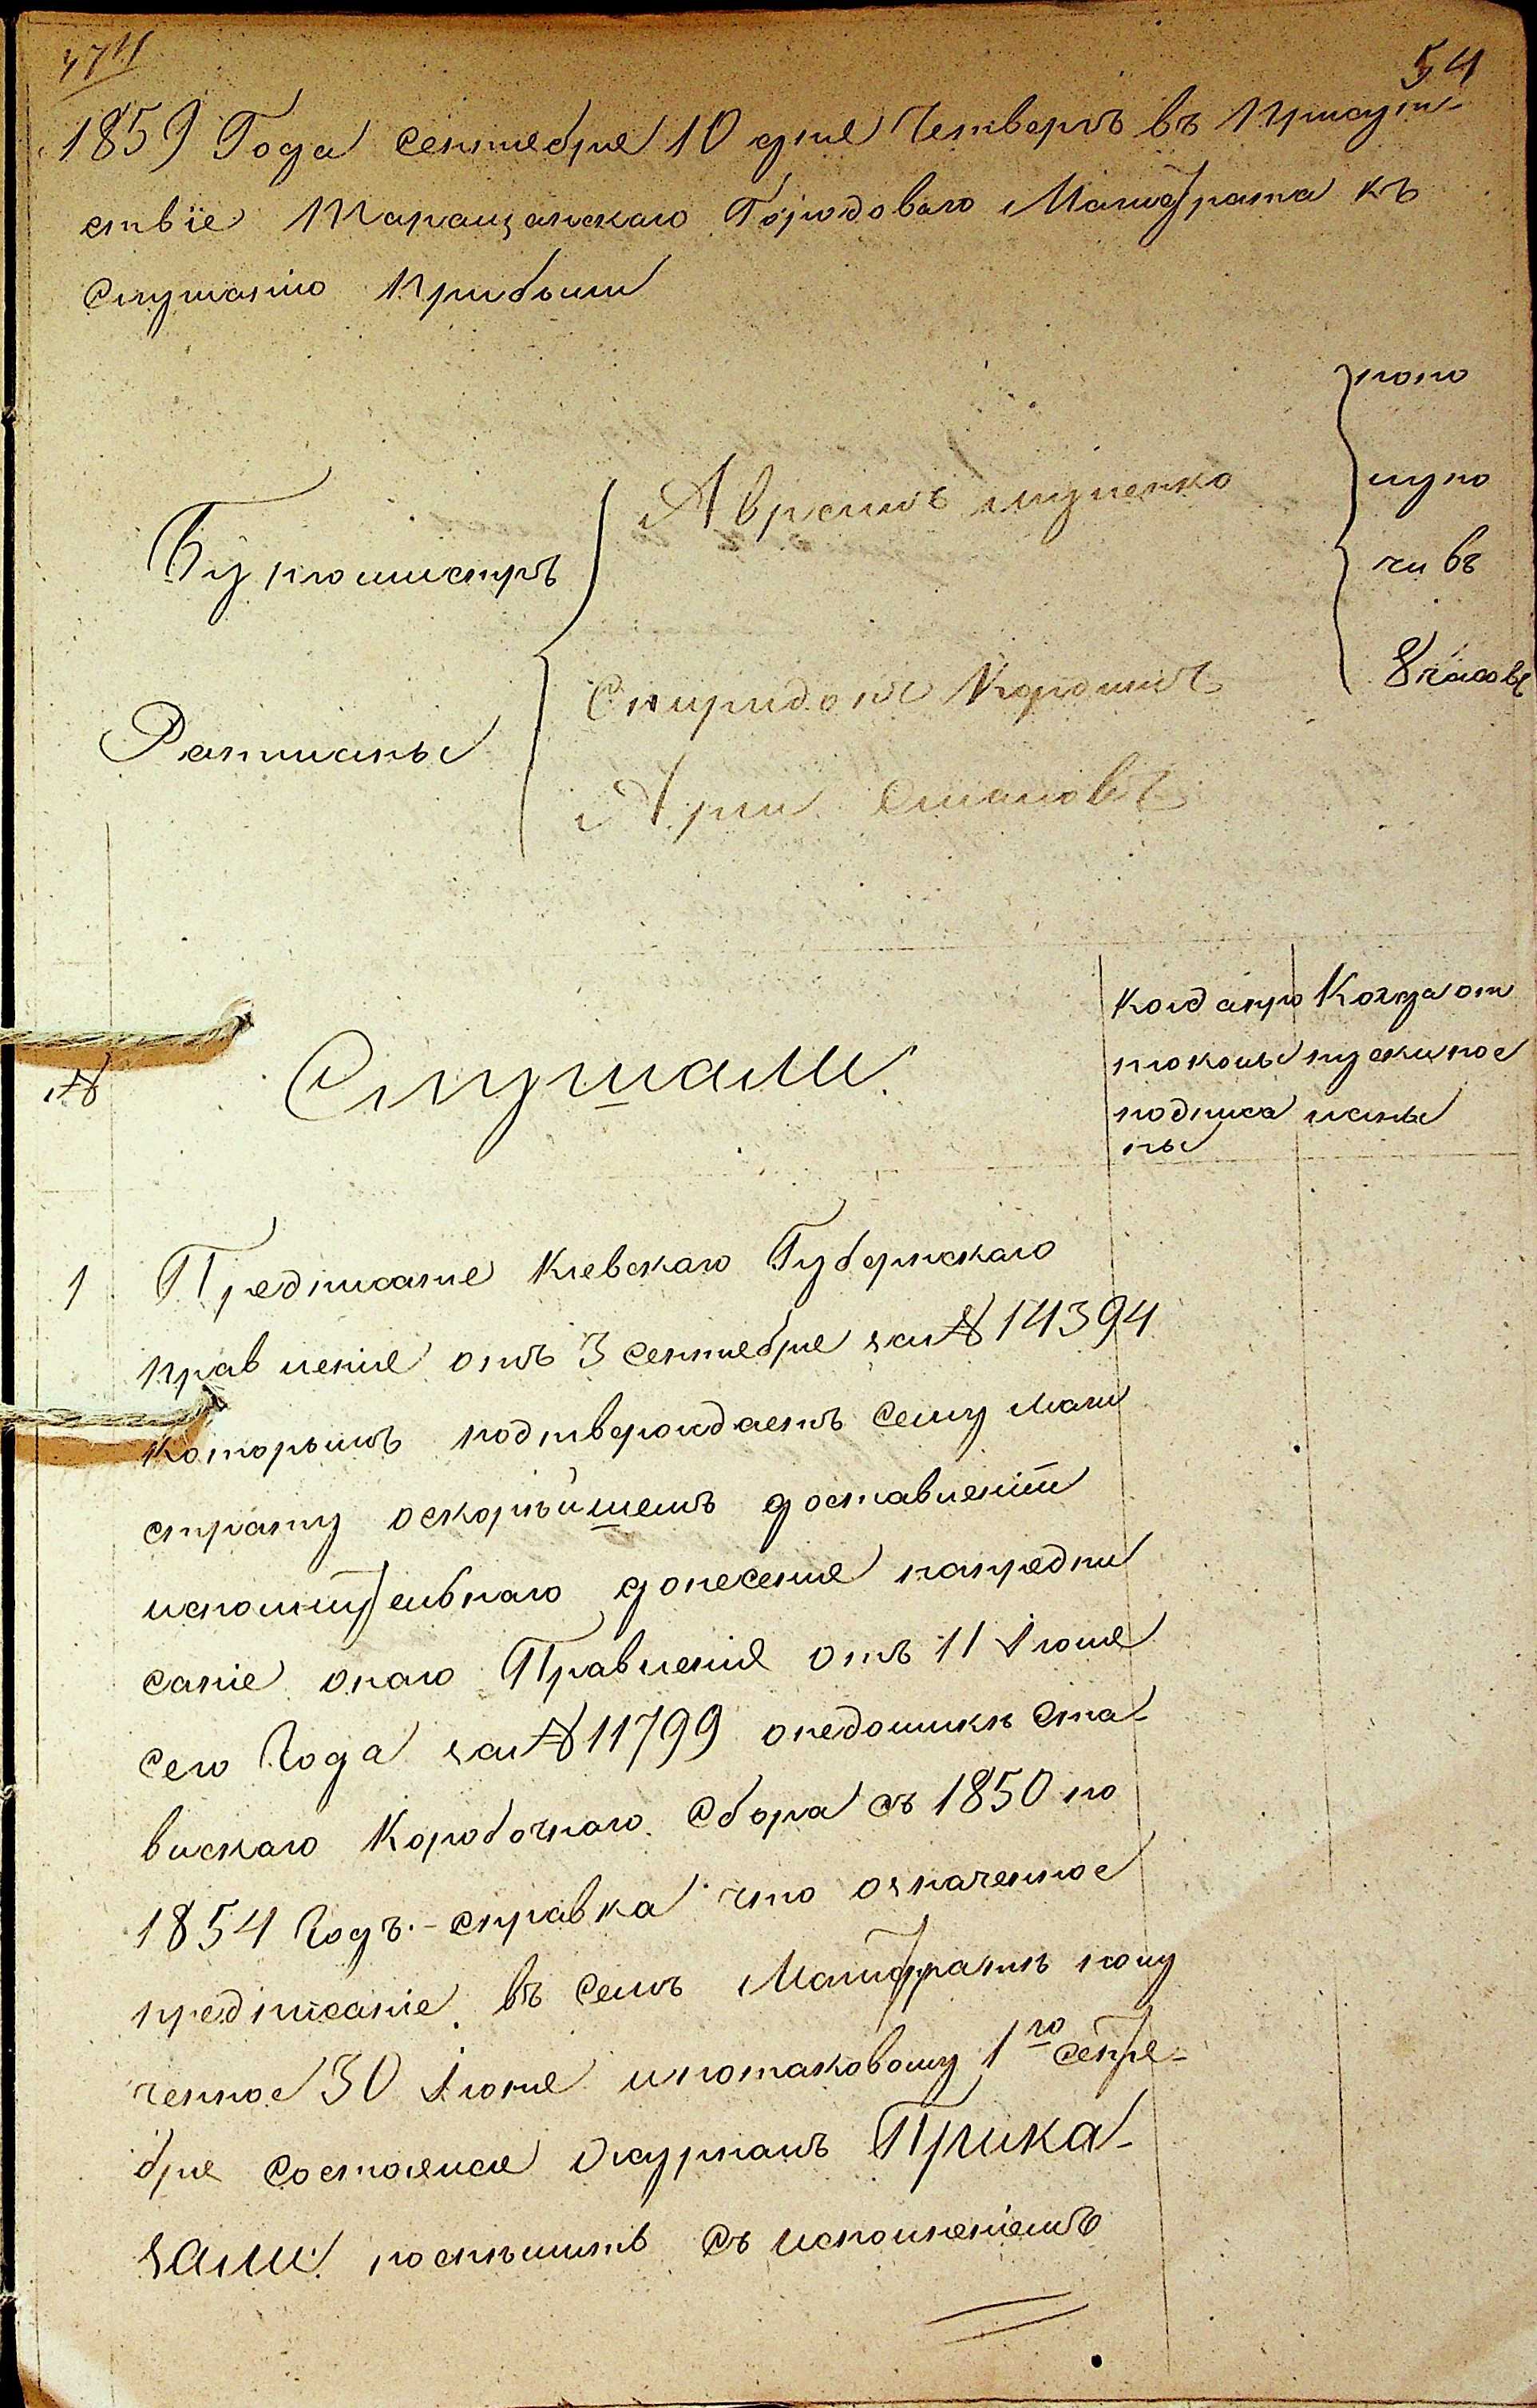 54
1859 Года сентебря 10 дня Четвергъ въ Присут-
ствіе Таращанскаго Городоваго Магистрата къ
слушанію прибыли
Бургомистръ
Ратманы
Спиридонъ
по по
лу но
чи въ
8 часовъ
№
Слушали
Когда про
токолы
подписа
ны
Когда от
пуски пос
ланы
1 Предписание Киевскаго Губернскаго
правления отъ 3 сентебря за № 14394
которымъ подтверождаетъ сему маги
страту оскорѣйшемъ доставленіи
исполнительнаго донесения напредпи
саніе онаго Правления отъ 11 Июня
сего Года за № 11799 онедоимкѣ Ста-
вискаго Коробочнаго сбора съ 1850 по
1854 Годъ.- справка что означенное
предписаніе въ семъ Магистратѣ полу
ченное 30 Июня ипотаковому 1го сентя-
бря состоялся журналъ Прика-
зали: поспѣшить съ исполненіемъ